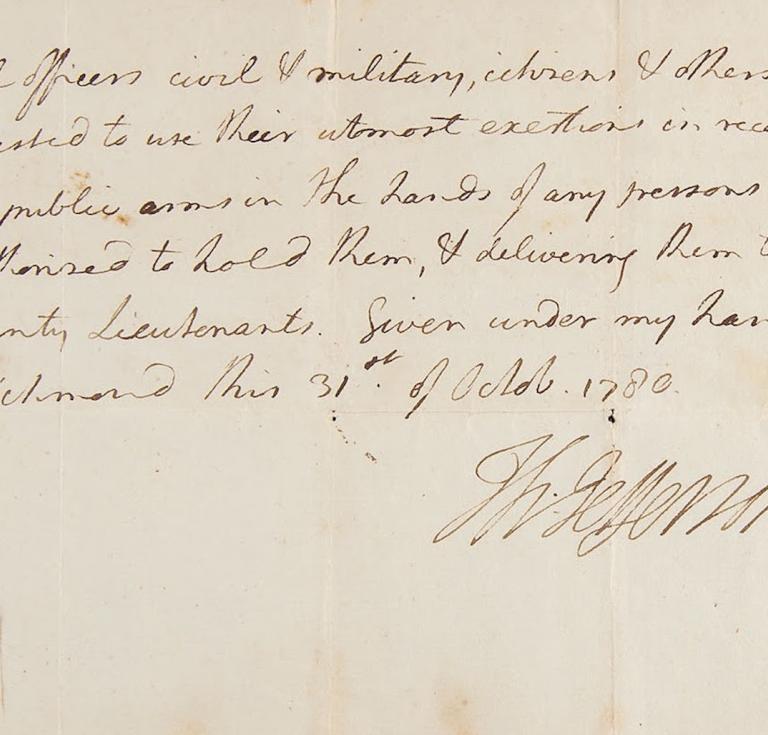 l officers civil & military, citizens & others
ested to use their utmost exertions in rec
public arms in the hands of any persons
thorised to hold them, & delivering them t
unty Lieutenants. Given under my han
ichmond this 31st. of Octob. 1780.
Th: Jefferson